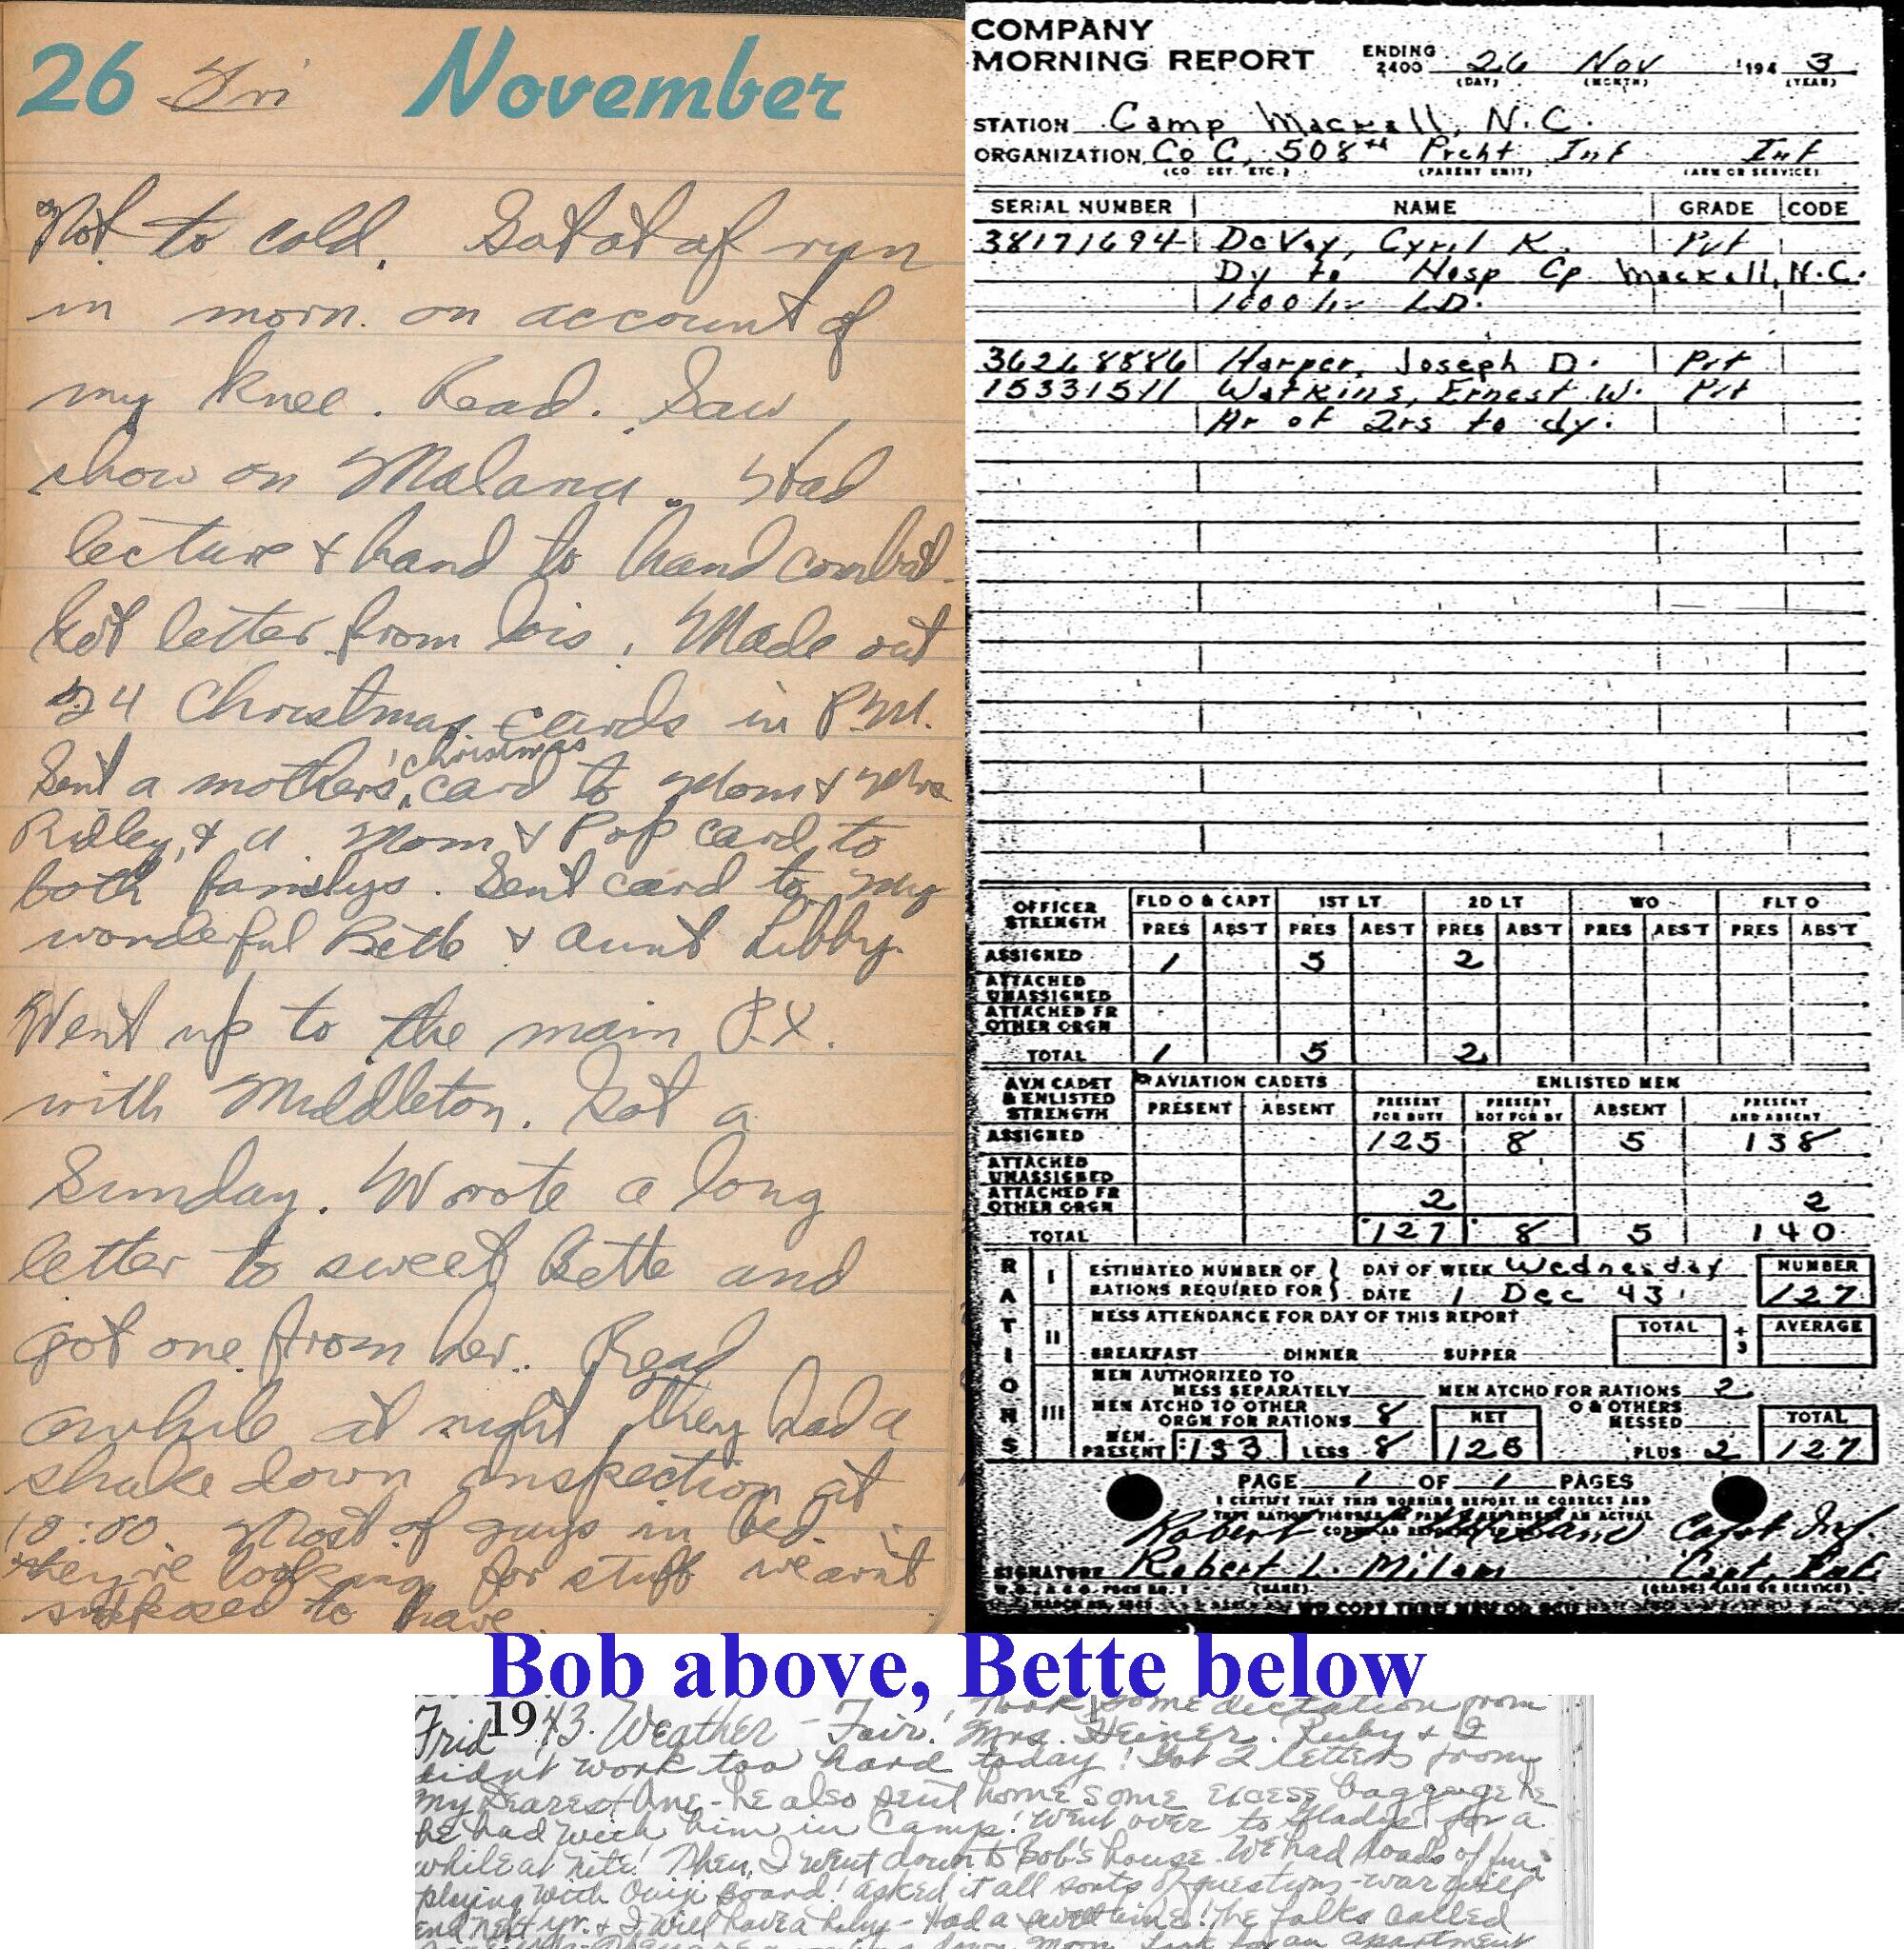 26 Fri November
Not to cold. Got out of run
in morn. on account of
my knee. Read. Saw
show on Malaria. Had
lecture & hand to hand combat.
Got letter from Lois. Made out
24 Christmas cards in P.M.
Christmas
Sent a mothers, card to Mom & Mrs
Ridley, & a Mom & Pop card to
both familys. Sent card to my
wonderful Bette & Aunt Libby.
Went up to the main P.X.
with Middleton. Got a
Sunday. Wrote a long
letter to sweet Bette and
got one from her. Read
awhile at night they had a
shake down inspection at
10:00. Most of guys in bed.
they're looking for stuff we arnt
supposed to have.
COMPANY
MORNING REPORT ENDING 2400 26 Nov 1943
(DAY) (MONTH) (YEAR)
STATION Camp Mackall, N.C.
ORGANIZATION Co C, 508th Prcht Inf Inf
(CO. DET. ETC.) (PARENT UNIT) (ARM OR SERVICE)
SERIAL NUMBER NAME GRADE CODE
38171694 DeVoy, Cyril K. Pvt
Dy to Hosp Cp Mackall, N.C.
1600 hr LD.
36268886 Harper, Joseph D. Pvt
15331511 Watkins, Ernest W. Pvt
Ar of 2rs to dy.
OFFICER STRENGTH FLD O & CAPT 1ST LT 2D LT WO FLT O
PRES ABS'T PRES ABS'T PRES ABS'T PRES ABS'T PRES ABS'T
ASSIGNED 1 5 2
ATTACHED UNASSIGNED
ATTACHED FR OTHER ORGN
TOTAL 1 5 2
AVN CADET & ENLISTED STRENGTH AVIATION CADETS ENLISTED MEN
PRESENT ABSENT PRESENT FOR DUTY PRESENT NOT FOR DY ABSENT PRESENT AND ABSENT
ASSIGNED 125 8 5 138
ATTACHED UNASSIGNED
ATTACHED FR OTHER ORGN 2 2
TOTAL 127 8 5 140
RATIONS
I ESTIMATED NUMBER OF RATIONS REQUIRED FOR DAY OF WEEK Wednesday NUMBER
DATE 1 Dec 43 127
II MESS ATTENDANCE FOR DAY OF THIS REPORT TOTAL ÷ 3 AVERAGE
BREAKFAST DINNER SUPPER
III MEN AUTHORIZED TO MESS SEPARATELY MEN ATCHD FOR RATIONS 2
MEN ATCHD TO OTHER ORGN FOR RATIONS 8 NET O & OTHERS MESSED TOTAL
MEN PRESENT 133 LESS 8 125 PLUS 2 127
PAGE 1 OF 1 PAGES
I CERTIFY THAT THIS MORNING REPORT IS CORRECT AND
Robert Capt Inf.
SIGNATURE Robert L. Milam Capt, Inf.
(NAME) (GRADE) (ARM OR SERVICE)
Bob above, Bette below
Took some dictation from
Frid 1943. Weather - Fair! Mrs. Heiner. Ruby & I
didn't work too hard today! Got 2 letters from
my Dearest One - he also sent home some excess baggage he
he had with him in Camp! Went over to Gladys for a
while at nite! Then I went down to Bob's house. We had loads of fun
playing with Ouija Board! asked it all sorts of questions - war will
end next yr. & I will have a baby - Had a swell time! The folks called
an apartment